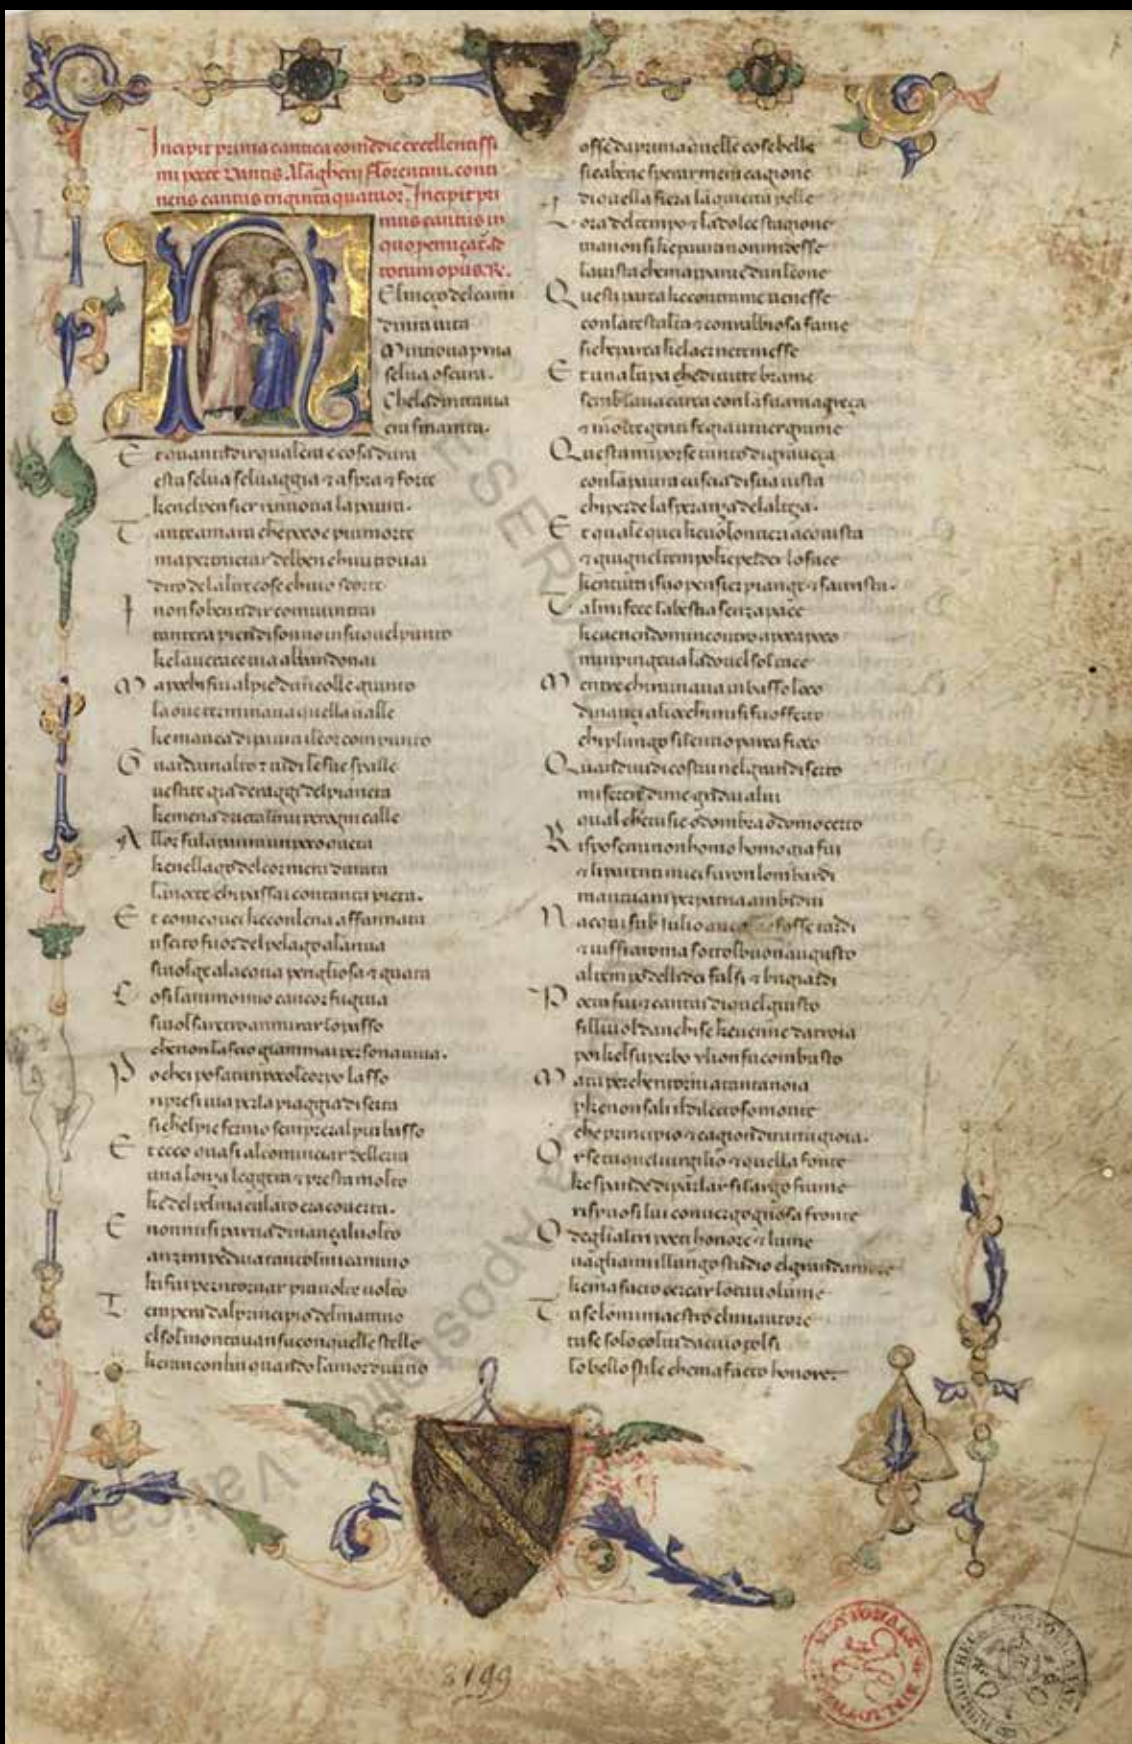 Incipit prima cantica comedie excellentissi
mi poete Dantis Alagherii Florentini. conti
nens cantus triginta quatuor. Incipit pri
mus cantus in
quo
totum opus. Re.
N
El meço del cami
di nra uita
Mi ritrouai p una
selua oscura.
Che la diritta uia
era smarrita.
Et quanto dir qual era e cosa dura
esta selua seluaggia 7 aspra 7 forte
ke nel pensier rinnoua la paura.
Tante amara che poco e piu morte
ma per trectar del ben chiui trouai
diro de laltre cose chiuo scorte
I non so ben ridir comiuintrai
tantera pien di sonno in su quel punto
ke la uerace uia abandonai
Ma pochi fui al pie dun colle giunto
la oue terminaua quella ualle
ke mauea di paura il cor compunto
Guardai in alto 7 uidi le sue spalle
uestite gia de raggi del pianeta
ke mena dricto altrui per ogni calle
Allor fu la paura un poco queta
ke nel lago del cor mera durata
la nocte chi passai con tanta pieta.
Et come quei ke con lena affannata
uscito fuor del pelago a la riua
si uolge a lacqua perigliosa 7 guata
Cosi lanimo mio cancor fugiua
si uolse retro a rimirar lo passo
che non lascio giammai persona uiua.
Po chei posato un poco il corpo lasso
ripresi uia per la piaggia diserta
si chel pie fermo sempre era l piu basso
Et ecco quasi al cominciar dellerta
una lonza leggera 7 presta molto
ke de pel maculato era couerta.
E non mi si partia dinançi al uolto
anzi mpediua tanto l mio camino
ki fui per ritornar piu uolte uolto
Temp era dal principio del matino
el sol montaua n su con quelle stelle
keran con lui quando lamor diuino
mosse da prima quelle cose belle
si ca bene sperar mera cagione
di quella fiera la gaetta pelle
Lora del tempo 7 la dolce stagione
ma non si ke paura non mi desse
la uista che mapparue dun leone
Questi parea ke contra me uenesse
con la test alta 7 con rabbiosa fame
si che parea ke laer ne temesse
Et una lupa che di tutte brame
semblaua carca con la sua magreça
7 molte genti fe gia uiuer grame
Questa mi porse tanto di graueça
con la paura cuscia di sua uista
chi perde la sperança de lalteça.
Et quale quei ke uolontieri acquista
7 giugnel tempo ke perder lo face
ke n tutti i suo pensier piange 7 sattrista.
Tal mi fece la bestia senza pace
ke uenendomi ncontro a poco a poco
mi ripingeua la doue l sol tace
Mentre chi ruinaua in basso loco
dinançi a li occhi mi si fu offerto
chi per lungo silentio parea fioco
Quando uidi costui nel gran diserto
miserere di me gridai a lui
qual che tu sie o dombra o domo certo
Risposemi non homo homo gia fui
7 li parenti miei furon lombardi
mantuani per patria ambidui
Nacqui sub Iulio fosse tardi
7 uissi a roma sottol buon augusto
al tempo delli dei falsi 7 bugiardi
Poeta fui 7 cantai di quel giusto
filliuol danchise ke uenne da troia
poi kel superbo ylion fu combusto
Ma tu perche ritorni a tanta noia
pke non sali il dilectoso monte
che principio 7 cagion di tutta gioia.
Or se tu quel uirgilio 7 quella fonte
ke spande di parlar si largo fiume
rispuosi lui con uergognosa fronte
O de gli altri poeti honore 7 lume
uagliami l lungo studio el grand amore
ke ma facto cercar lo tuo uolume
Tu se lo mi maestro el mi autore
tu se solo colui da cui tolsi
lo bello stile che ma facto honore.
3199